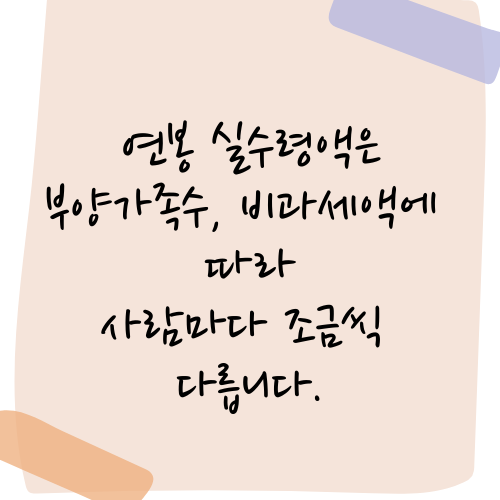 연봉 실수령액은
부양가족수, 비과세액에
따라
사람마다 조금씩
다릅니다.